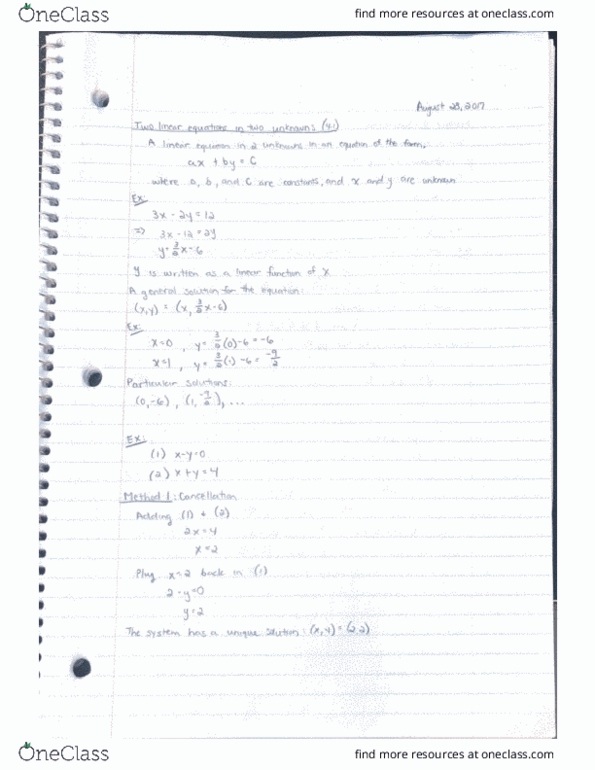 OneClass
find more resources at oneclass.com
August 28, 2017
Two linear equations in two unknowns: (4.1)
A linear equation in 2 unknowns in an equation of the form,
ax + by = C
where a, b, and C are constants, and x and y are unknown
Ex:
3x - 2y = 12
⇒ 3x - 12 = 2y
y = 3/2 x - 6
y is written as a linear function of x
A general solution for the equation:
(x,y) = (x, 3/2 x - 6)
Ex:
x=0 , y = 3/2 (0) - 6 = -6
x=1 , y = 3/2 (1) - 6 = -9/2
Particular solutions:
(0,-6) , (1, -9/2), ...
Ex:
(1) x-y=0
(2) x+y=4
Method 1: Cancellation
Adding (1) + (2)
2x=4
x=2
Plug x=2 back in (1)
2-y=0
y=2
The system has a unique solution: (x,y) = (2,2)
OneClass
find more resources at oneclass.com